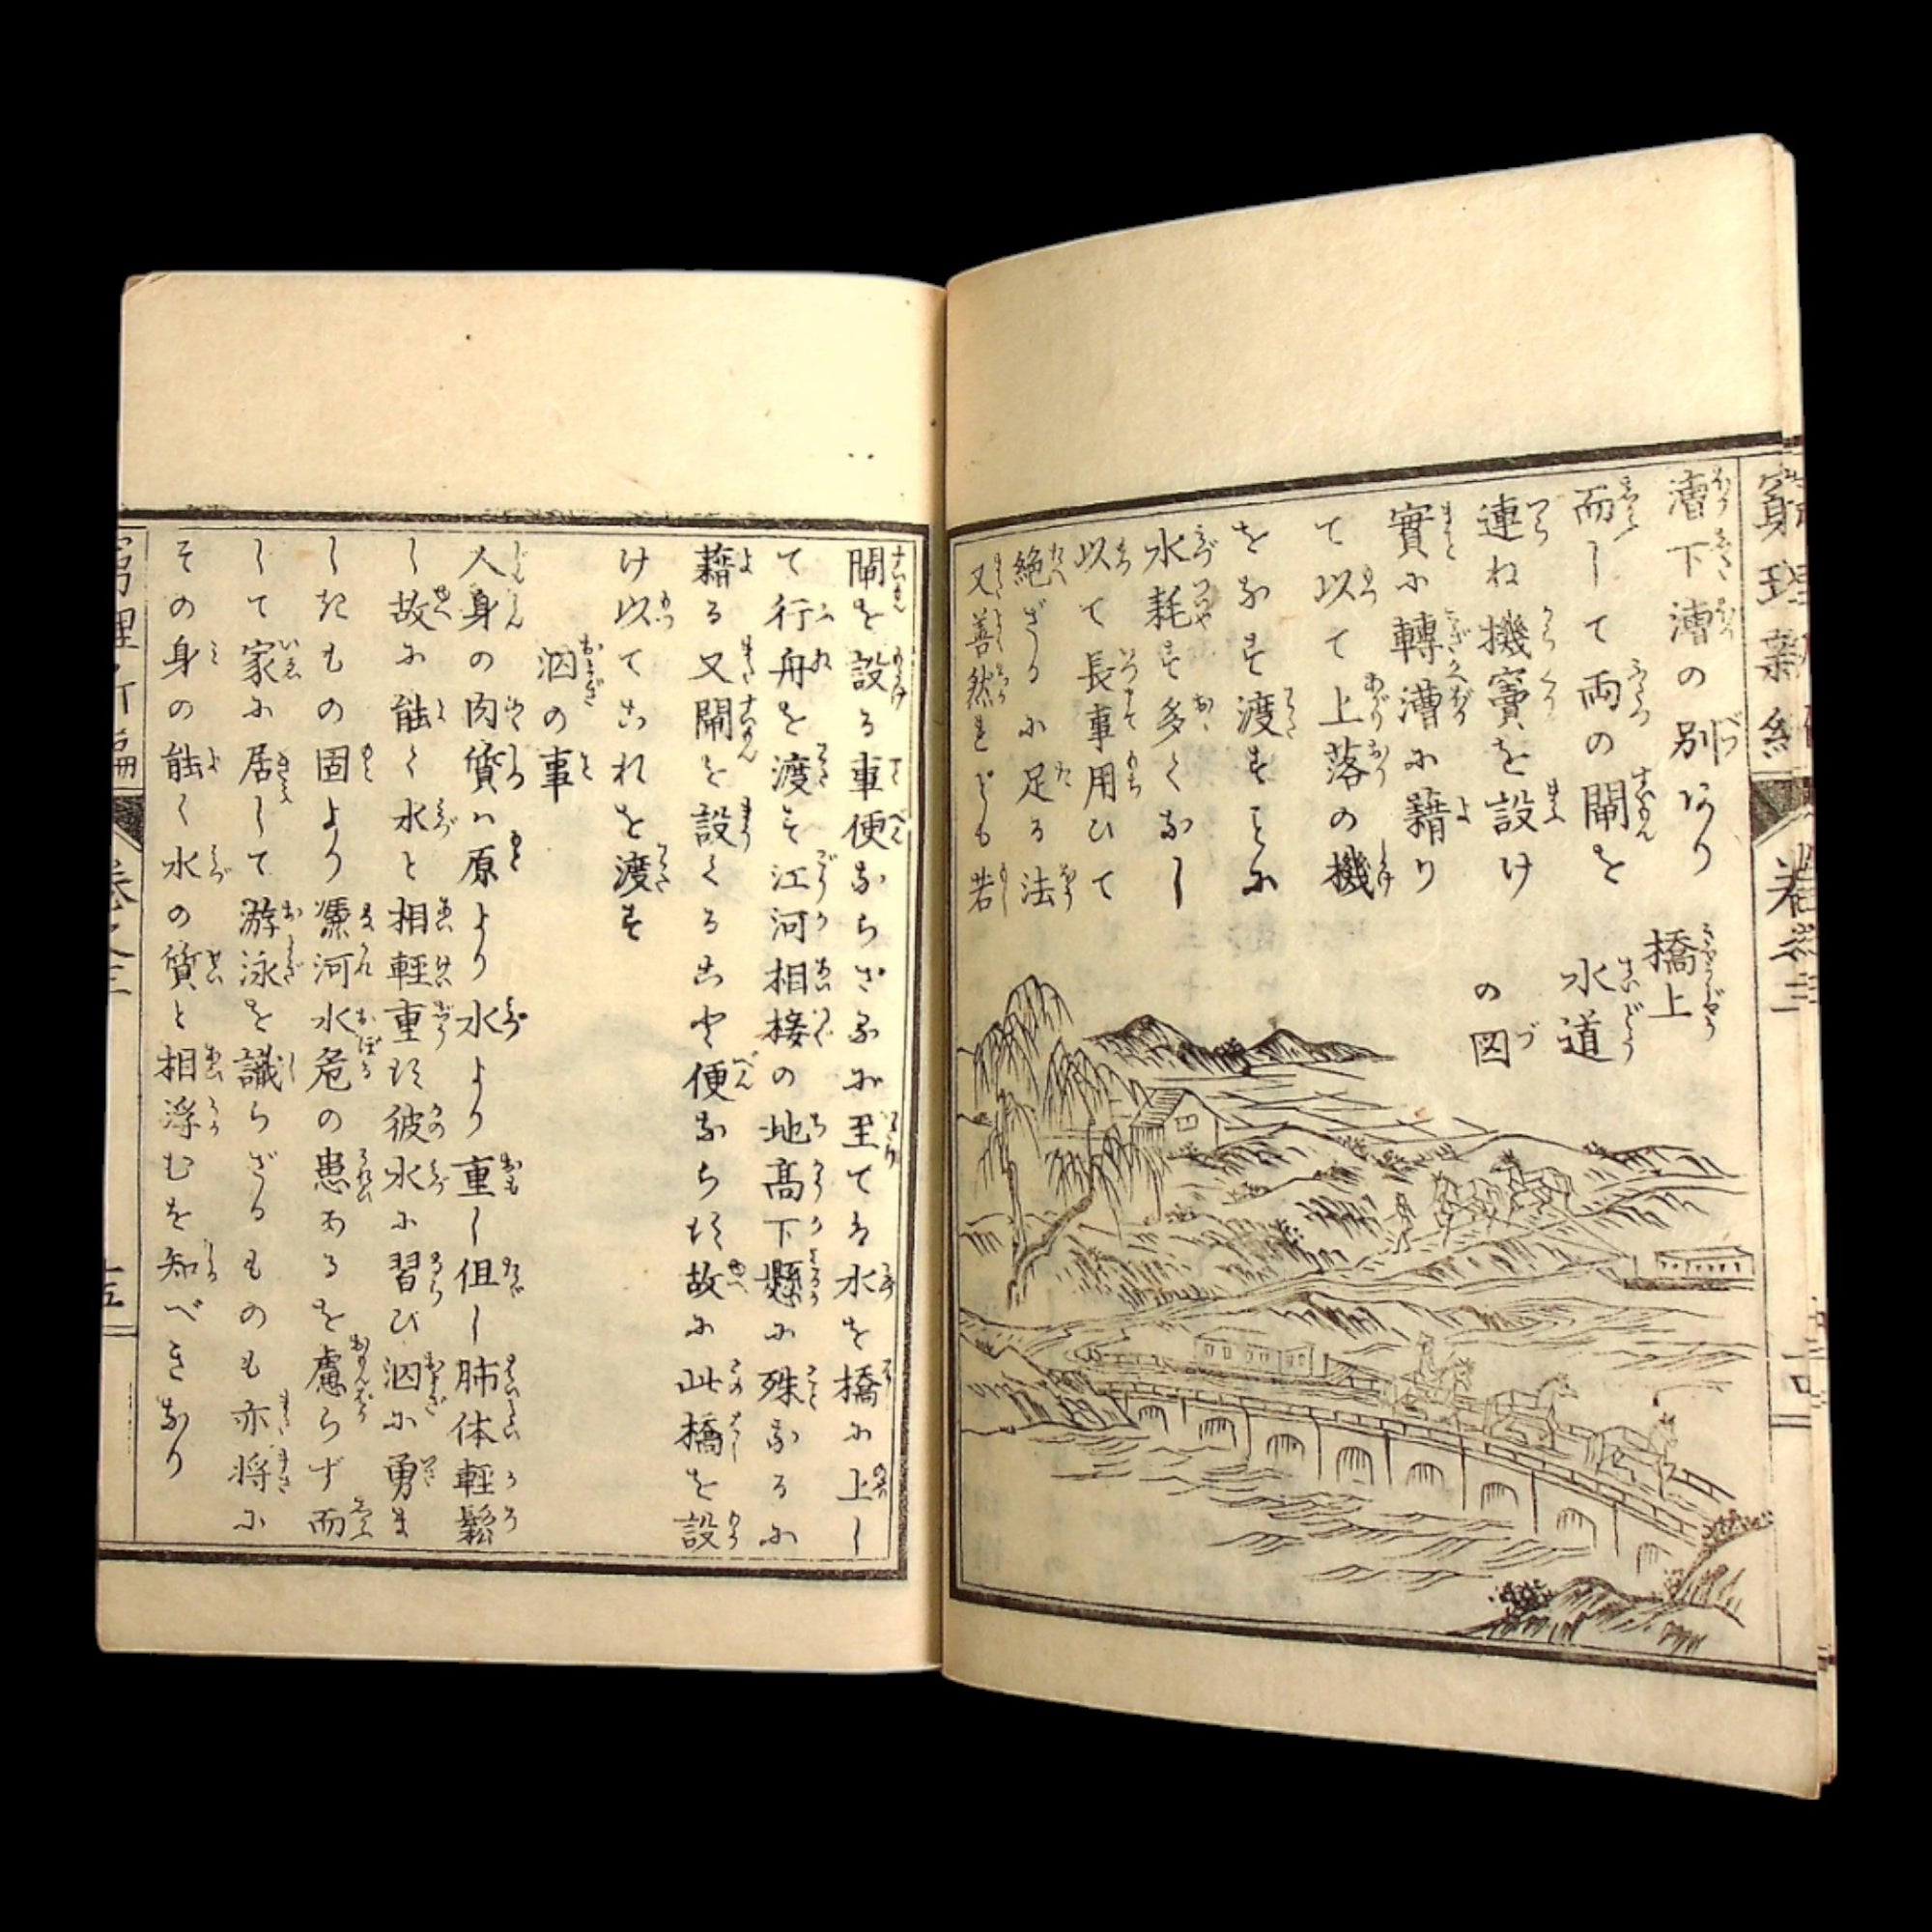 漕下漕の別あり
而して両の閘を
連ね機竇を設け
實に轉漕に藉り
て以て上落の機
をなす渡すことに
水耗す多くなし
以て長事用ひて
絶ざるに足る法
又善然れども若
橋上
水道
の図
閘を設る車便ならざるが至ては水を橋に上し
て行舟を渡す江河相接の地高下懸に殊なるに
藉る又閘を設くること便ならず故に此橋を設
け以てこれを渡す
泅の事
人身の肉質ハ原より水より重し但し肺体輕鬆
し故に能く水と相輕重す彼水に習ひ泅に勇ま
しきもの固より慿河水危の患あるを慮らず而
して家に居して游泳を識らざるものも亦将に
その身の能く水の質と相浮むを知べきなり